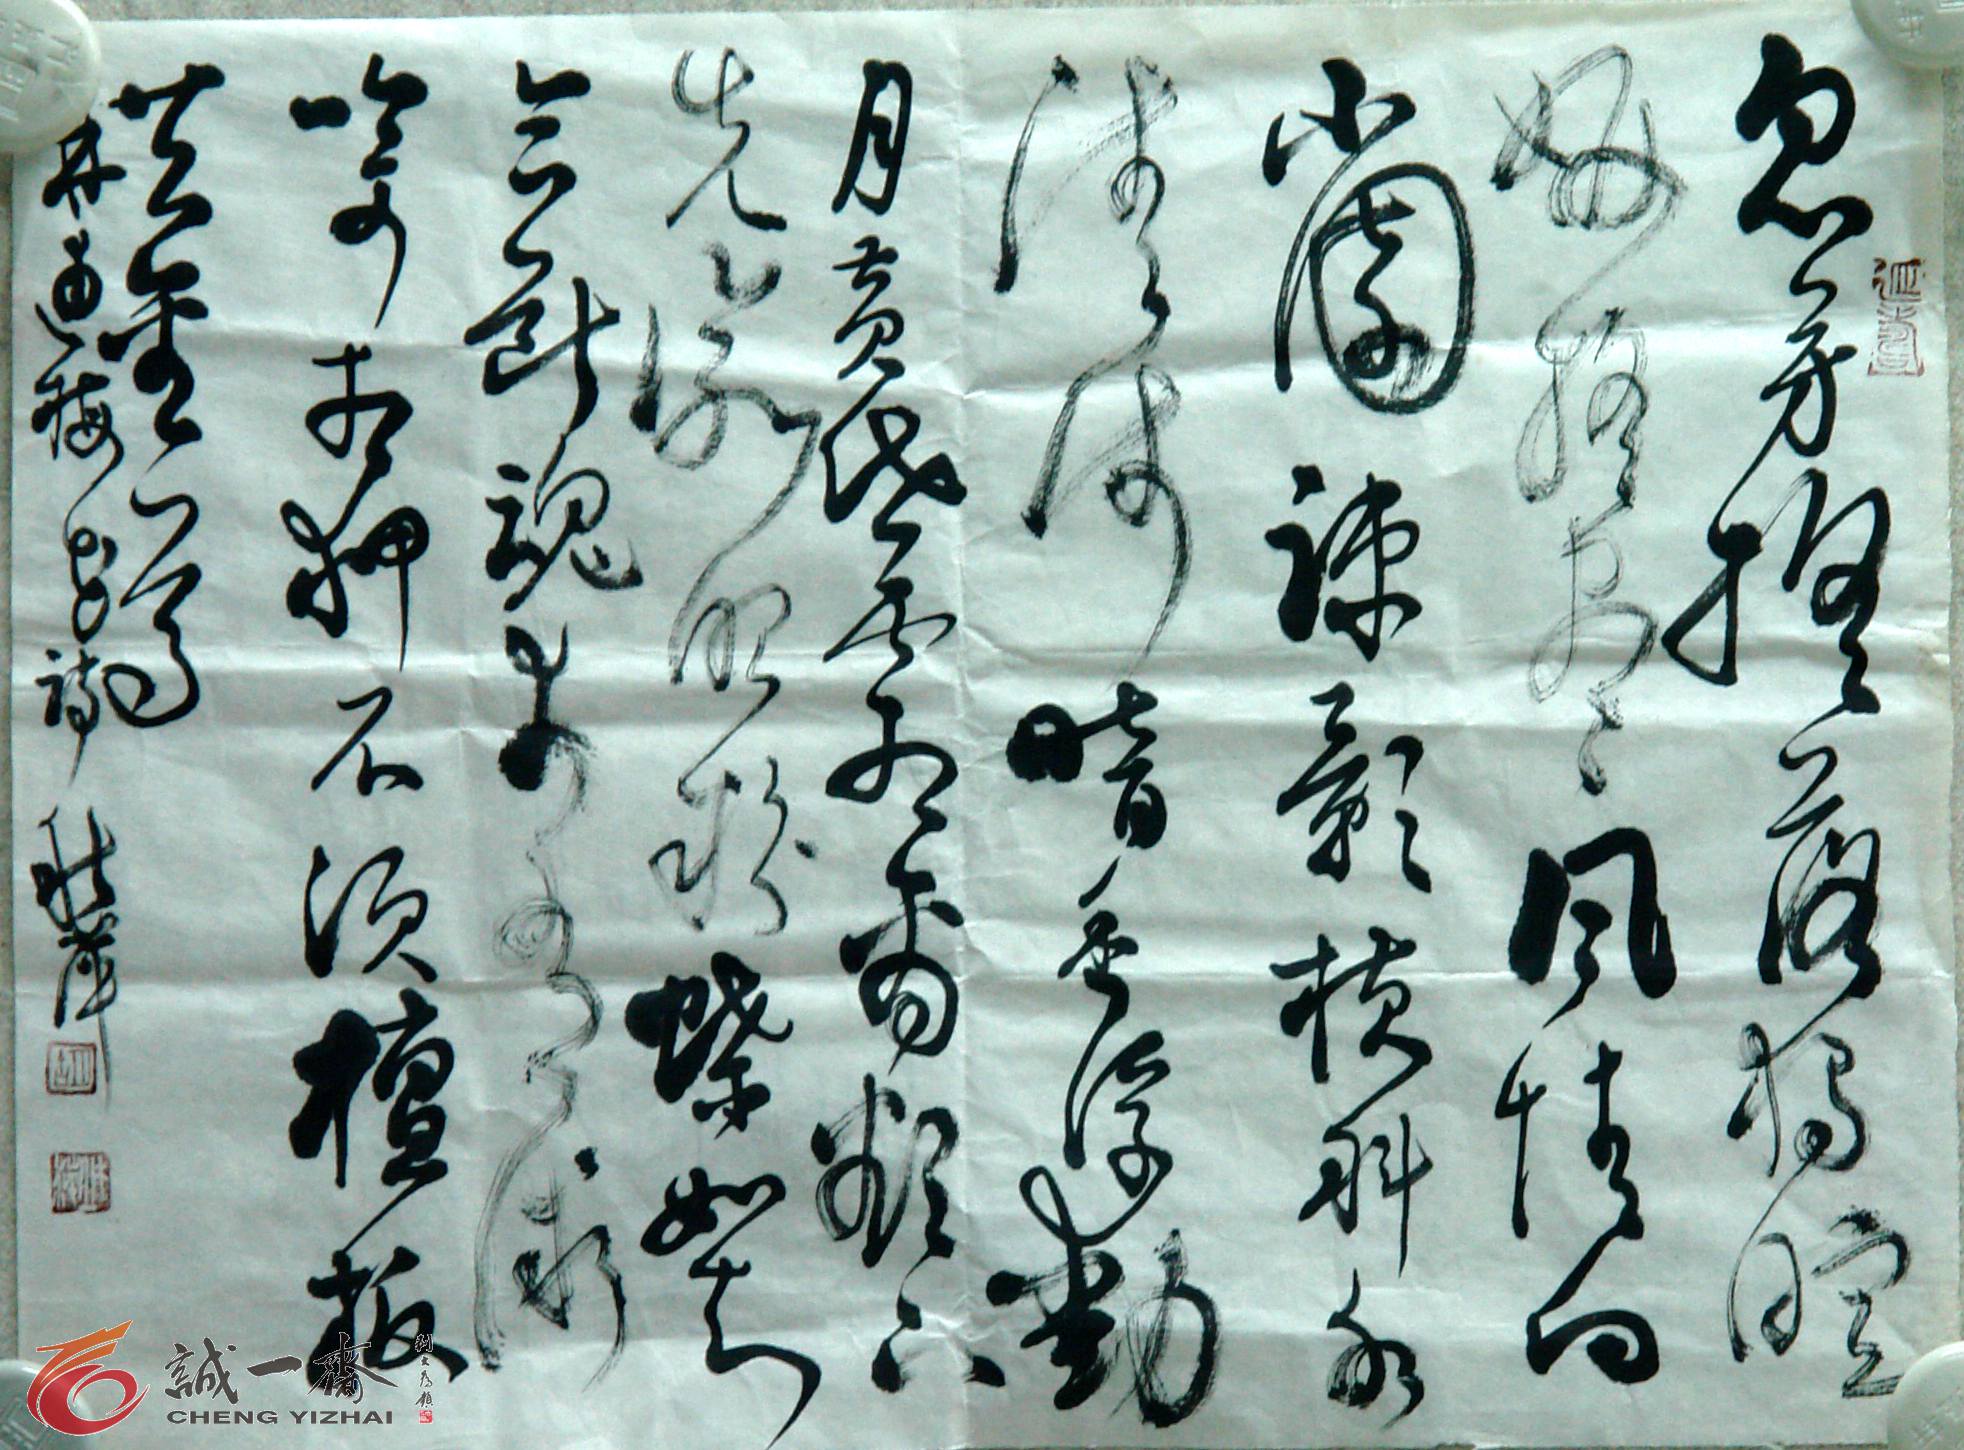 眾芳摇落獨暄
妍占盡風情向
小園疎影横斜水
清淺暗香浮動
月黄昏霜禽欲下
先偷眼粉蝶如知
合断魂幸有微
吟可相狎不須檀板
共金尊
林逋梅花詩
誠一齋
CHENG YIZHAI